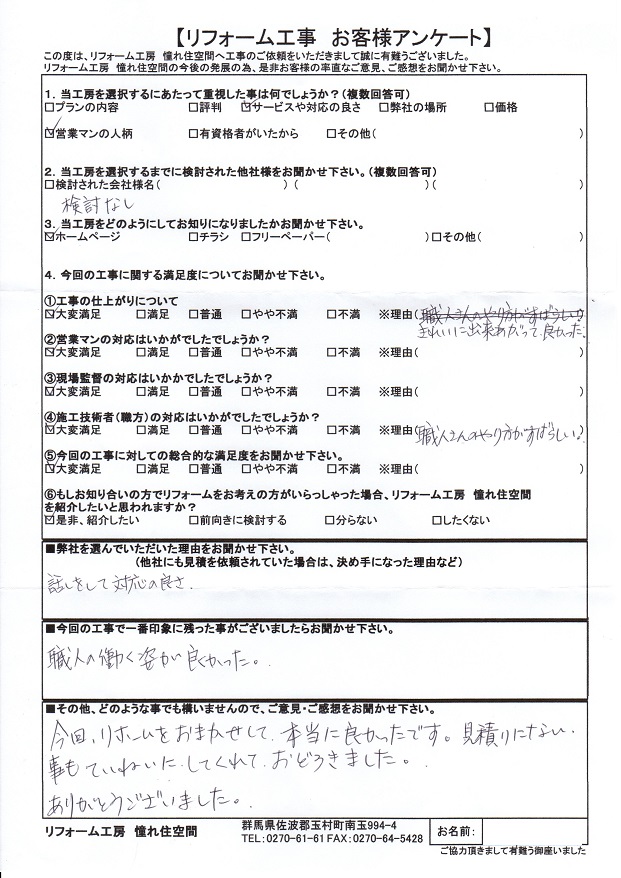 【リフォーム工事 お客様アンケート】
この度は、リフォーム工房 憧れ住空間へ工事のご依頼をいただきまして誠に有難うございました。
リフォーム工房 憧れ住空間の今後の発展の為、是非お客様の率直なご意見、ご感想をお聞かせ下さい。
1. 当工房を選択するにあたって重視した事は何でしょうか？(複数回答可)
□プランの内容 □評判 ☑サービスや対応の良さ □弊社の場所 □価格
☑営業マンの人柄 □有資格者がいたから □その他( )
2. 当工房を選択するまでに検討された他社様をお聞かせ下さい。(複数回答可)
□検討された会社様名( ) ( )( )
検討なし
3. 当工房をどのようにしてお知りになりましたかお聞かせ下さい。
☑ホームページ □チラシ □フリーペーパー( )□その他( )
4. 今回の工事に関する満足度についてお聞かせ下さい。
①工事の仕上がりについて
☑大変満足 □満足 □普通 □やや不満 □不満 ※理由(職人さんのやり方がすばらしい!)
きれいに出来あがって良かった.
②営業マンの対応はいかがでしたでしょうか？
☑大変満足 □満足 □普通 □やや不満 □不満 ※理由( )
③現場監督の対応はいかかでしたでしょうか？
☑大変満足 □満足 □普通 □やや不満 □不満 ※理由( )
④施工技術者(職方)の対応はいかがでしたでしょうか？
☑大変満足 □満足 □普通 □やや不満 □不満 ※理由(職人さんのやり方がすばらしい!)
⑤今回の工事に対しての総合的な満足度をお聞かせ下さい。
☑大変満足 □満足 □普通 □やや不満 □不満 ※理由( )
⑥もしお知り合いの方でリフォームをお考えの方がいらっしゃった場合、リフォーム工房 憧れ住空間
を紹介したいと思われますか？
☑是非、紹介したい □前向きに検討する □分らない □したくない
■弊社を選んでいただいた理由をお聞かせ下さい。
(他社にも見積を依頼されていた場合は、決め手になった理由など)
話しをして対応の良さ.
■今回の工事で一番印象に残った事がございましたらお聞かせ下さい。
職人の働く姿が良くかった。
■その他、どのような事でも構いませんので、ご意見・ご感想をお聞かせ下さい。
今回、リホームをおまかせして、本当に良かったです。見積りにない
事もていねいにしてくれて、おどろきました。
ありがとうございました。
リフォーム工房 憧れ住空間
群馬県佐波郡玉村町南玉994-4
TEL:0270-61-61 FAX:0270-64-5428
お名前:
ご協力頂きまして有難う御座いました